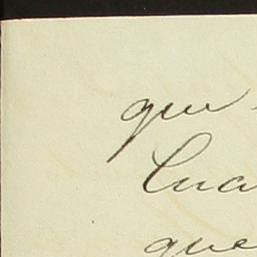 que
Cua
que